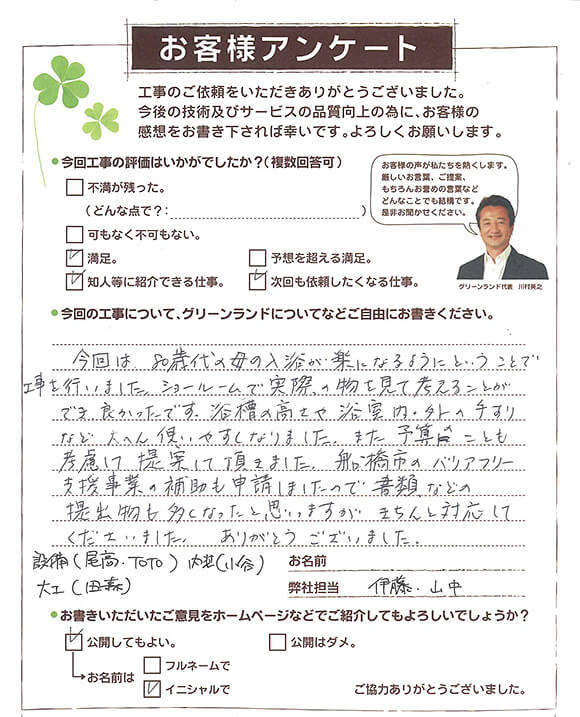 お客様アンケート
工事のご依頼をいただきありがとうございました。
今後の技術及びサービスの品質向上の為に、お客様の
感想をお書き下されば幸いです。よろしくお願いします。
今回工事の評価はいかがでしたか？（複数回答可）
お客様の声が私たちを熱くします。
厳しいお言葉、ご提案、
もちろんお誉めの言葉など
どんなことでも結構です。
是非お聞かせください。
不満が残った。
（どんな点で？：）
可もなく不可もない。
満足。 予想を超える満足。
知人等に紹介できる仕事。 次回も依頼したくなる仕事。
グリーンランド代表 川村英之
今回の工事について、グリーンランドについてなどご自由にお書きください。
今回は、80歳代の母の入浴が楽になるようにということで
工事を行いました。ショールームで実際の物を見て考えることが
でき良かったです。浴槽の高さや浴室内・外の手すり
など大へん使いやすくなりました。また予算のことも
考慮して提案して頂きました。船橋市のバリアフリー
支援事業の補助も申請しましたので書類などの
提出物も多くなったと思いますがきちんと対応して
くださいました。ありがとうございました。
設備(尾高・TOTO) 内装(小谷) お名前
大工() 弊社担当 伊藤・山中
お書きいただいたご意見をホームページなどでご紹介してもよろしいでしょうか？
公開してもよい。 公開はダメ。
お名前は フルネームで
イニシャルで ご協力ありがとうございました。